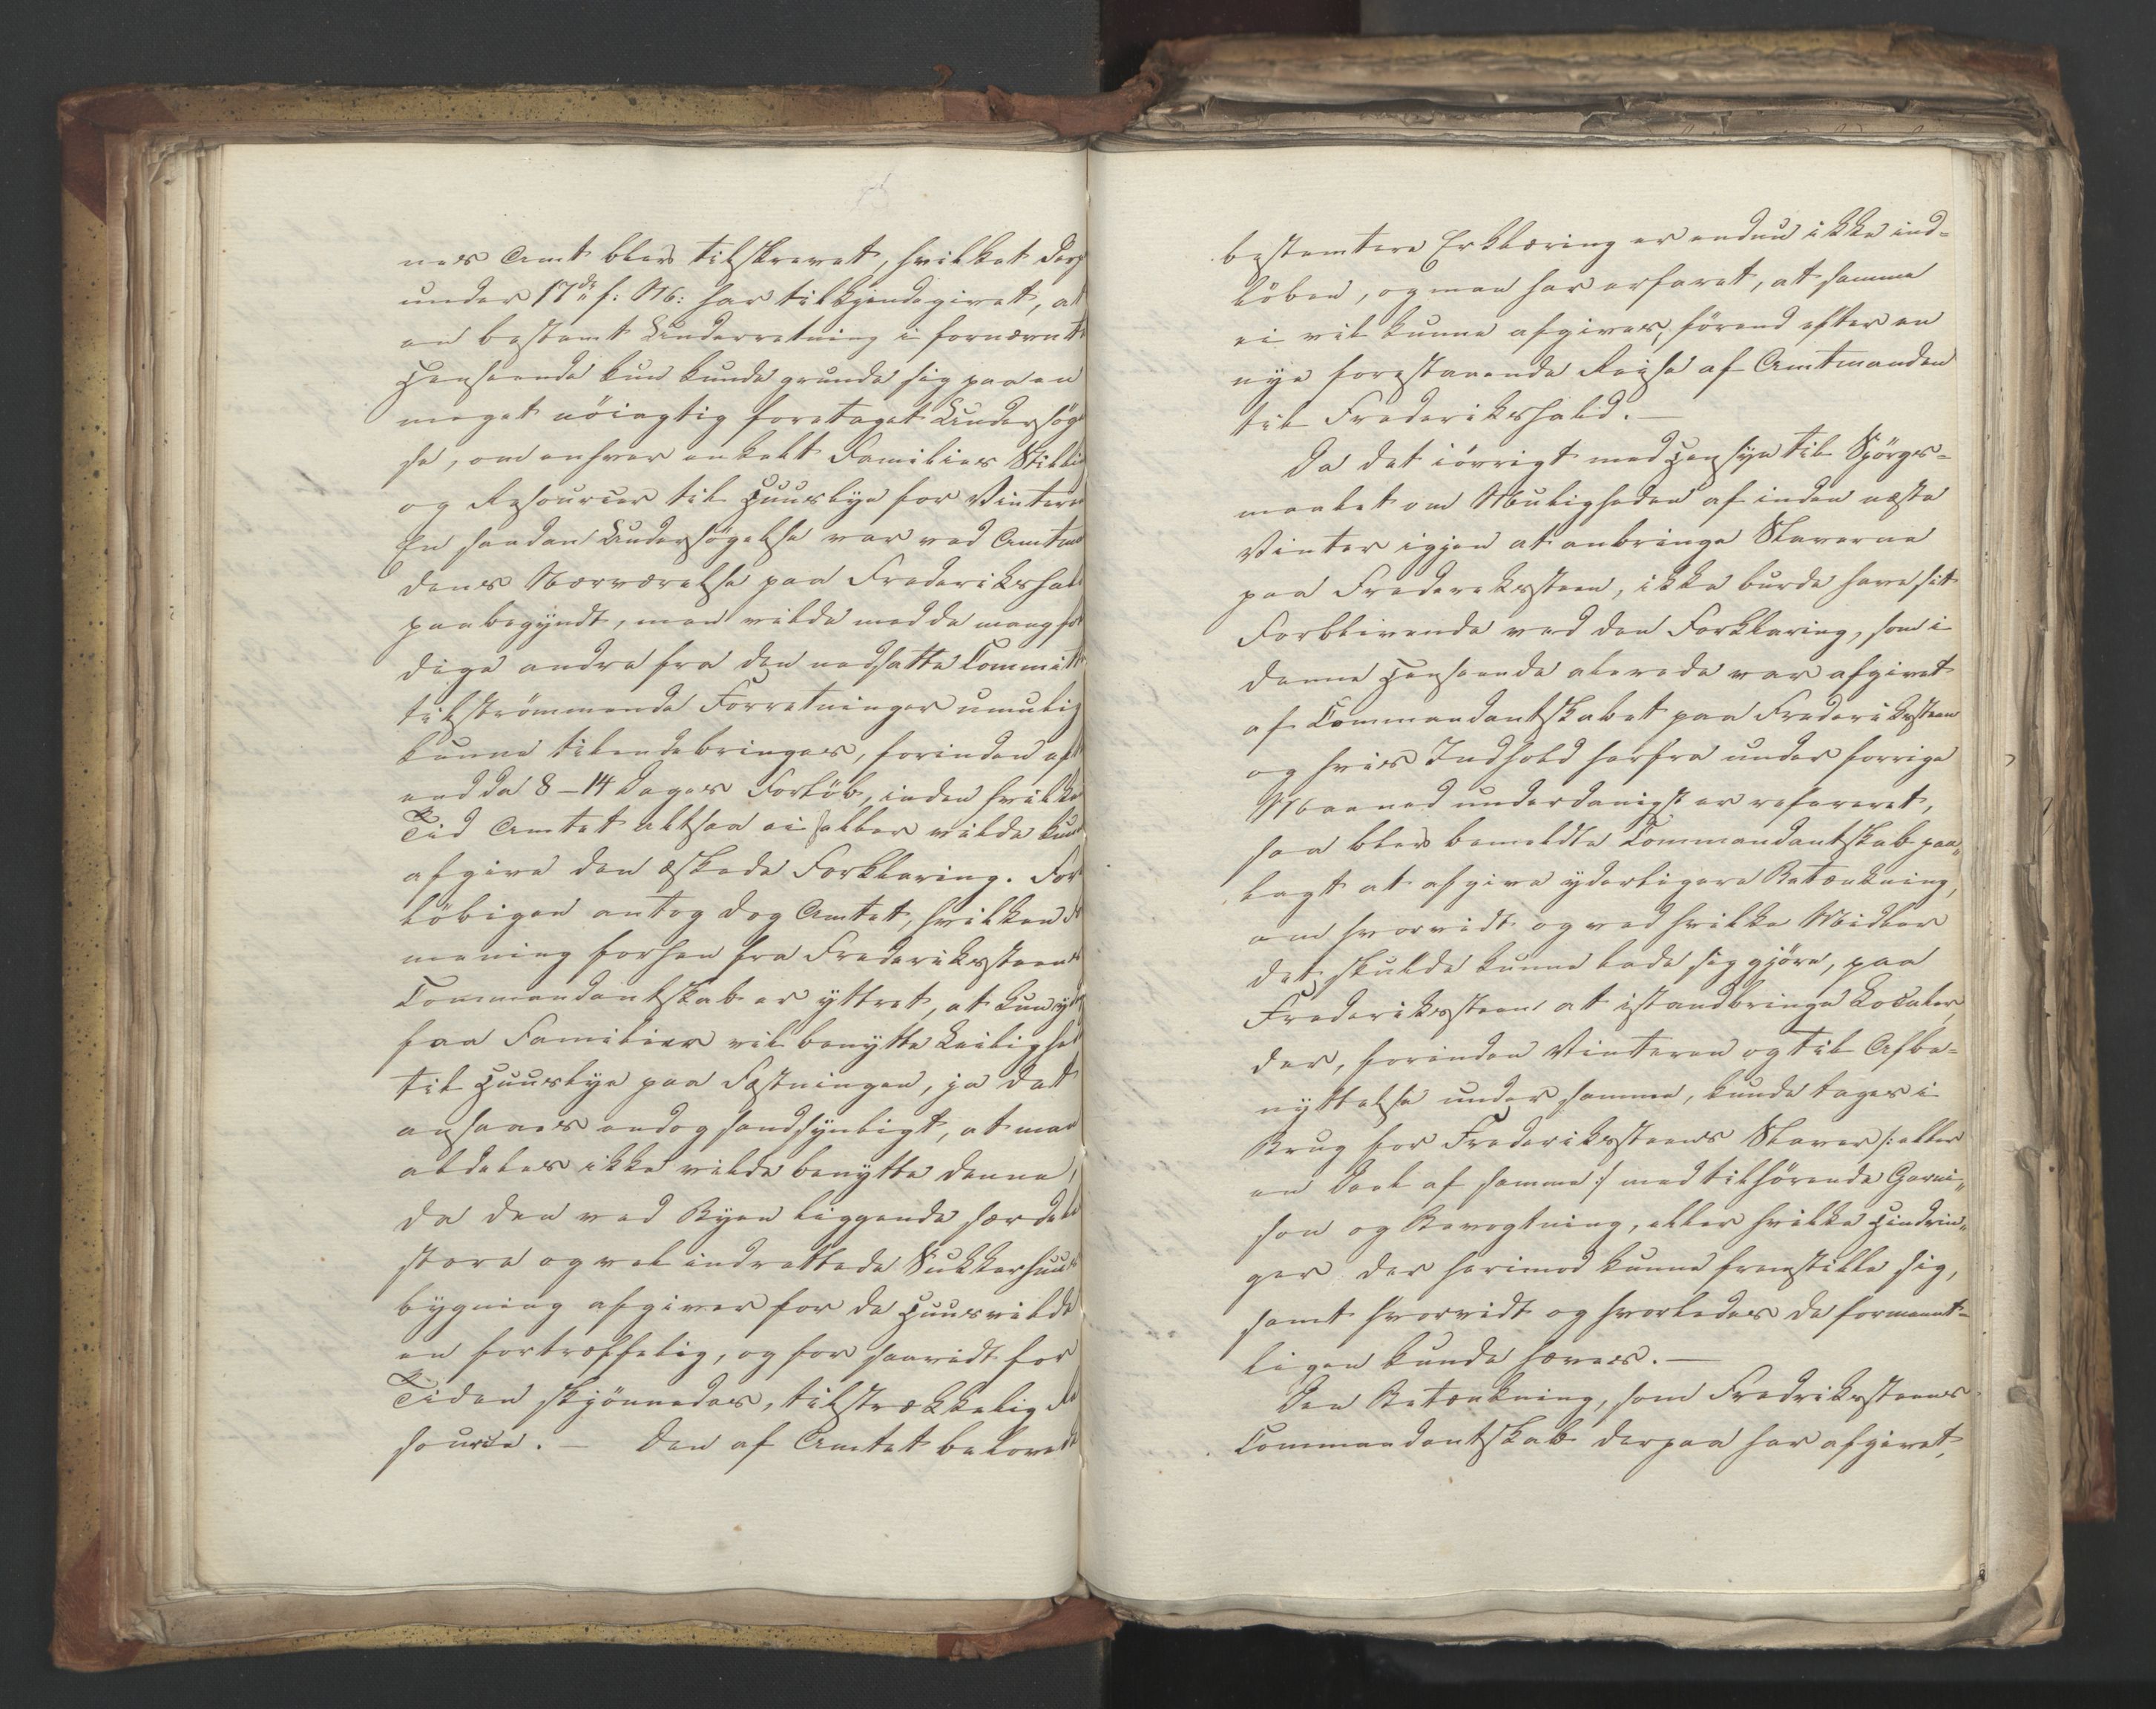 nes Amt blev tilskrevet, hvilket derp
under 17de f: M: har tilkjendegivet, at
en bestemt Underretning i fornævnte
Henseende kun kunde grunde sig paa en
meget nöiagtig foretaget Undersög
se, om enhver enkelt Families Stilli
og Resourcer til Huuslye for Vinteren
En saadan Undersögelse var ved Amtm
dens Nærværelse paa Frederikshal
paabegyndt, men vilde med de mangfol
dige andre fra den nedsatte Committ
tilströmmende Forretninger umulig
kunne tilendebringes, forinden eft
end da 8-14 Dages Forlöb, inden hvilken
Tid Amtet altsaa ei heller vilde kun
afgive den æskede Forklaring. For
löbigen antog dog Amtet, hvilken
mening forhen fra Frederiksteens
Commandantskab er yttret, at kun yd
faa Familier vil benytte Leilighed
til Huuslye paa Fæstningen, ja det
ansaaes endog sandsynligt, at man
aldeles ikke vilde benytte denne,
da den ved Byen liggende særdeles
store og vel indrettede Sukkerhuus
bygning afgiver for de Huusvilde
en fortræffelig, og for saavidt for
Tiden skjönnedes, tilstrækkelig Re
source. - Den af Amtet belovede
bestemtere Erklæring er endnu ikke ind-
löben, og man har erfaret, at samme
ei vil kunne afgives, förend efter en
nye forestaaende Reise af Amtmanden
til Frederikshald. -
Da det iövrigt med Hensyn til Spörgs-
maalet om Muligheden af inden næste
Vinter igjen at anbringe Slaverne
paa Frederiksteen, ikke burde have sit
Forblivende ved den Forklaring, som i
denne Henseende alerede var afgivet
af Commandantskabet paa Frederiksteen
og hvis Indhold herfra under forrige
Maaned underdanigst er refereret,
saa blev bemeldte Commandantskab paa„
lagt at afgive yderligere Betænkning,
om hvorvidt og ved hvilke Midler
det skulde kunne lade sig gjöre, paa
Frederiksteen at istandbringe Localer,
der, forinden Vinteren og til Afbe-
nyttelse under samme, kunde tages i
Brug for Frederiksteens Slaver /: eller
en Deel af samme :/ med tilhörende Garni„
son og Bevogtning, eller hvilke Hindrin„
ger der herimod kunne fremstille sig,
samt hvorvidt og hvorledes de formeent-
ligen kunde hæves. -
Den Betænkning, som Fredriksteens
Commandantskab derpaa har afgivet,